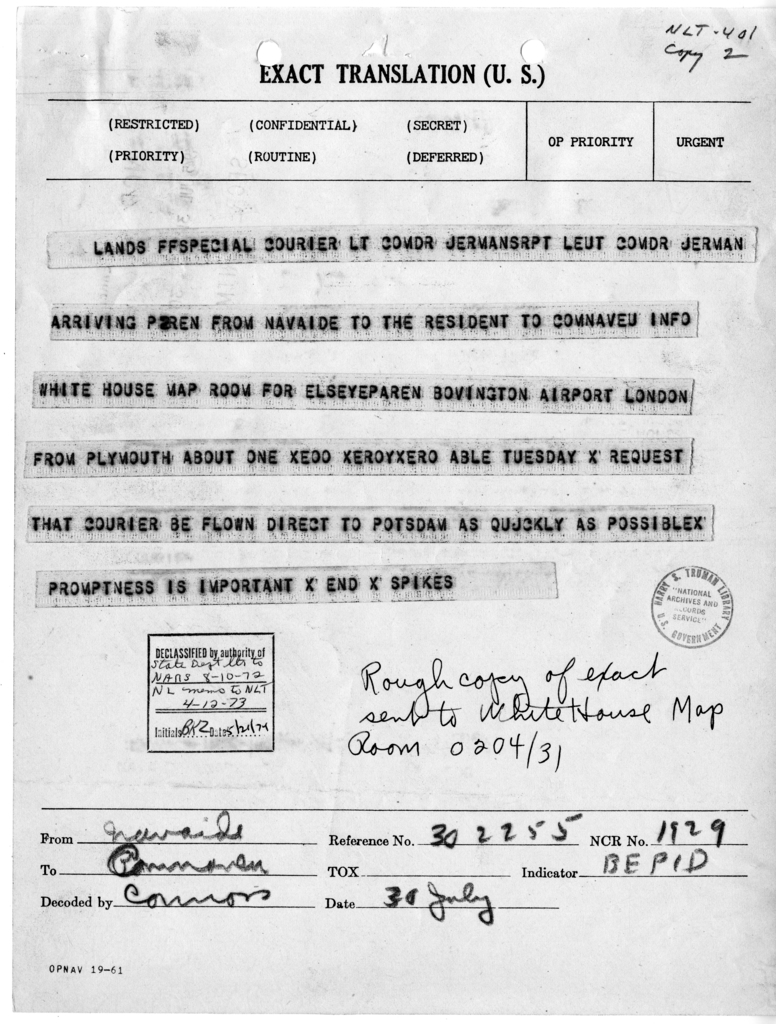 NLT-401
Copy 2
EXACT TRANSLATION (U. S.)
(RESTRICTED) (CONFIDENTIAL) (SECRET)
(PRIORITY) (ROUTINE) (DEFERRED)
OP PRIORITY
URGENT
LANDS FFSPECIAL COURIER LT COMDR JERMANSRPT LEUT COMDR JERMAN
ARRIVING PAREN FROM NAVAIDE TO THE RESIDENT TO COMNAVEU INFO
WHITE HOUSE MAP ROOM FOR ELSEYEPAREN BOVINGTON AIRPORT LONDON
FROM PLYMOUTH ABOUT ONE XEOO XEROYXERO ABLE TUESDAY X REQUEST
THAT COURIER BE FLOWN DIRECT TO POTSDAM AS QUJCKLY AS POSSIBLEX
PROMPTNESS IS IMPORTANT X END X SPIKES
HARRY S. TRUMAN LIBRARY
"NATIONAL
ARCHIVES AND
RECORDS
SERVICE"
U.S. GOVERNMENT
DECLASSIFIED by authority of
State Dept ltr to
NARS 8-10-72
NL memo to NLT
4-12-73
Initials BRZ Date 5/21/74
Rough copy of exact
sent to White House Map
Room 0204/31
From Navaide Reference No. 302255 NCR No. 1929
To Comnaveu TOX Indicator BEPID
Decoded by Connors Date 30 July
OPNAV 19-61